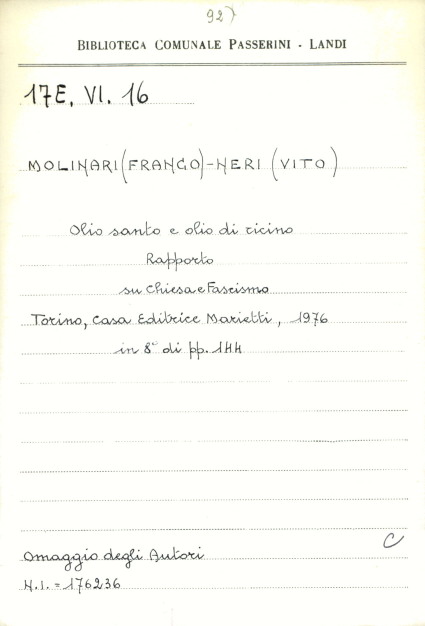 927
BIBLIOTECA COMUNALE PASSERINI - LANDI
17E. VI. 16
MOLINARI (FRANCO) - NERI (VITO)
Olio santo e olio di ricino
Rapporto
su Chiesa e Fascismo
Torino, Casa Editrice Marietti, 1976
in 8° di pp. 144
C
Omaggio degli Autori
N.I. = 176236